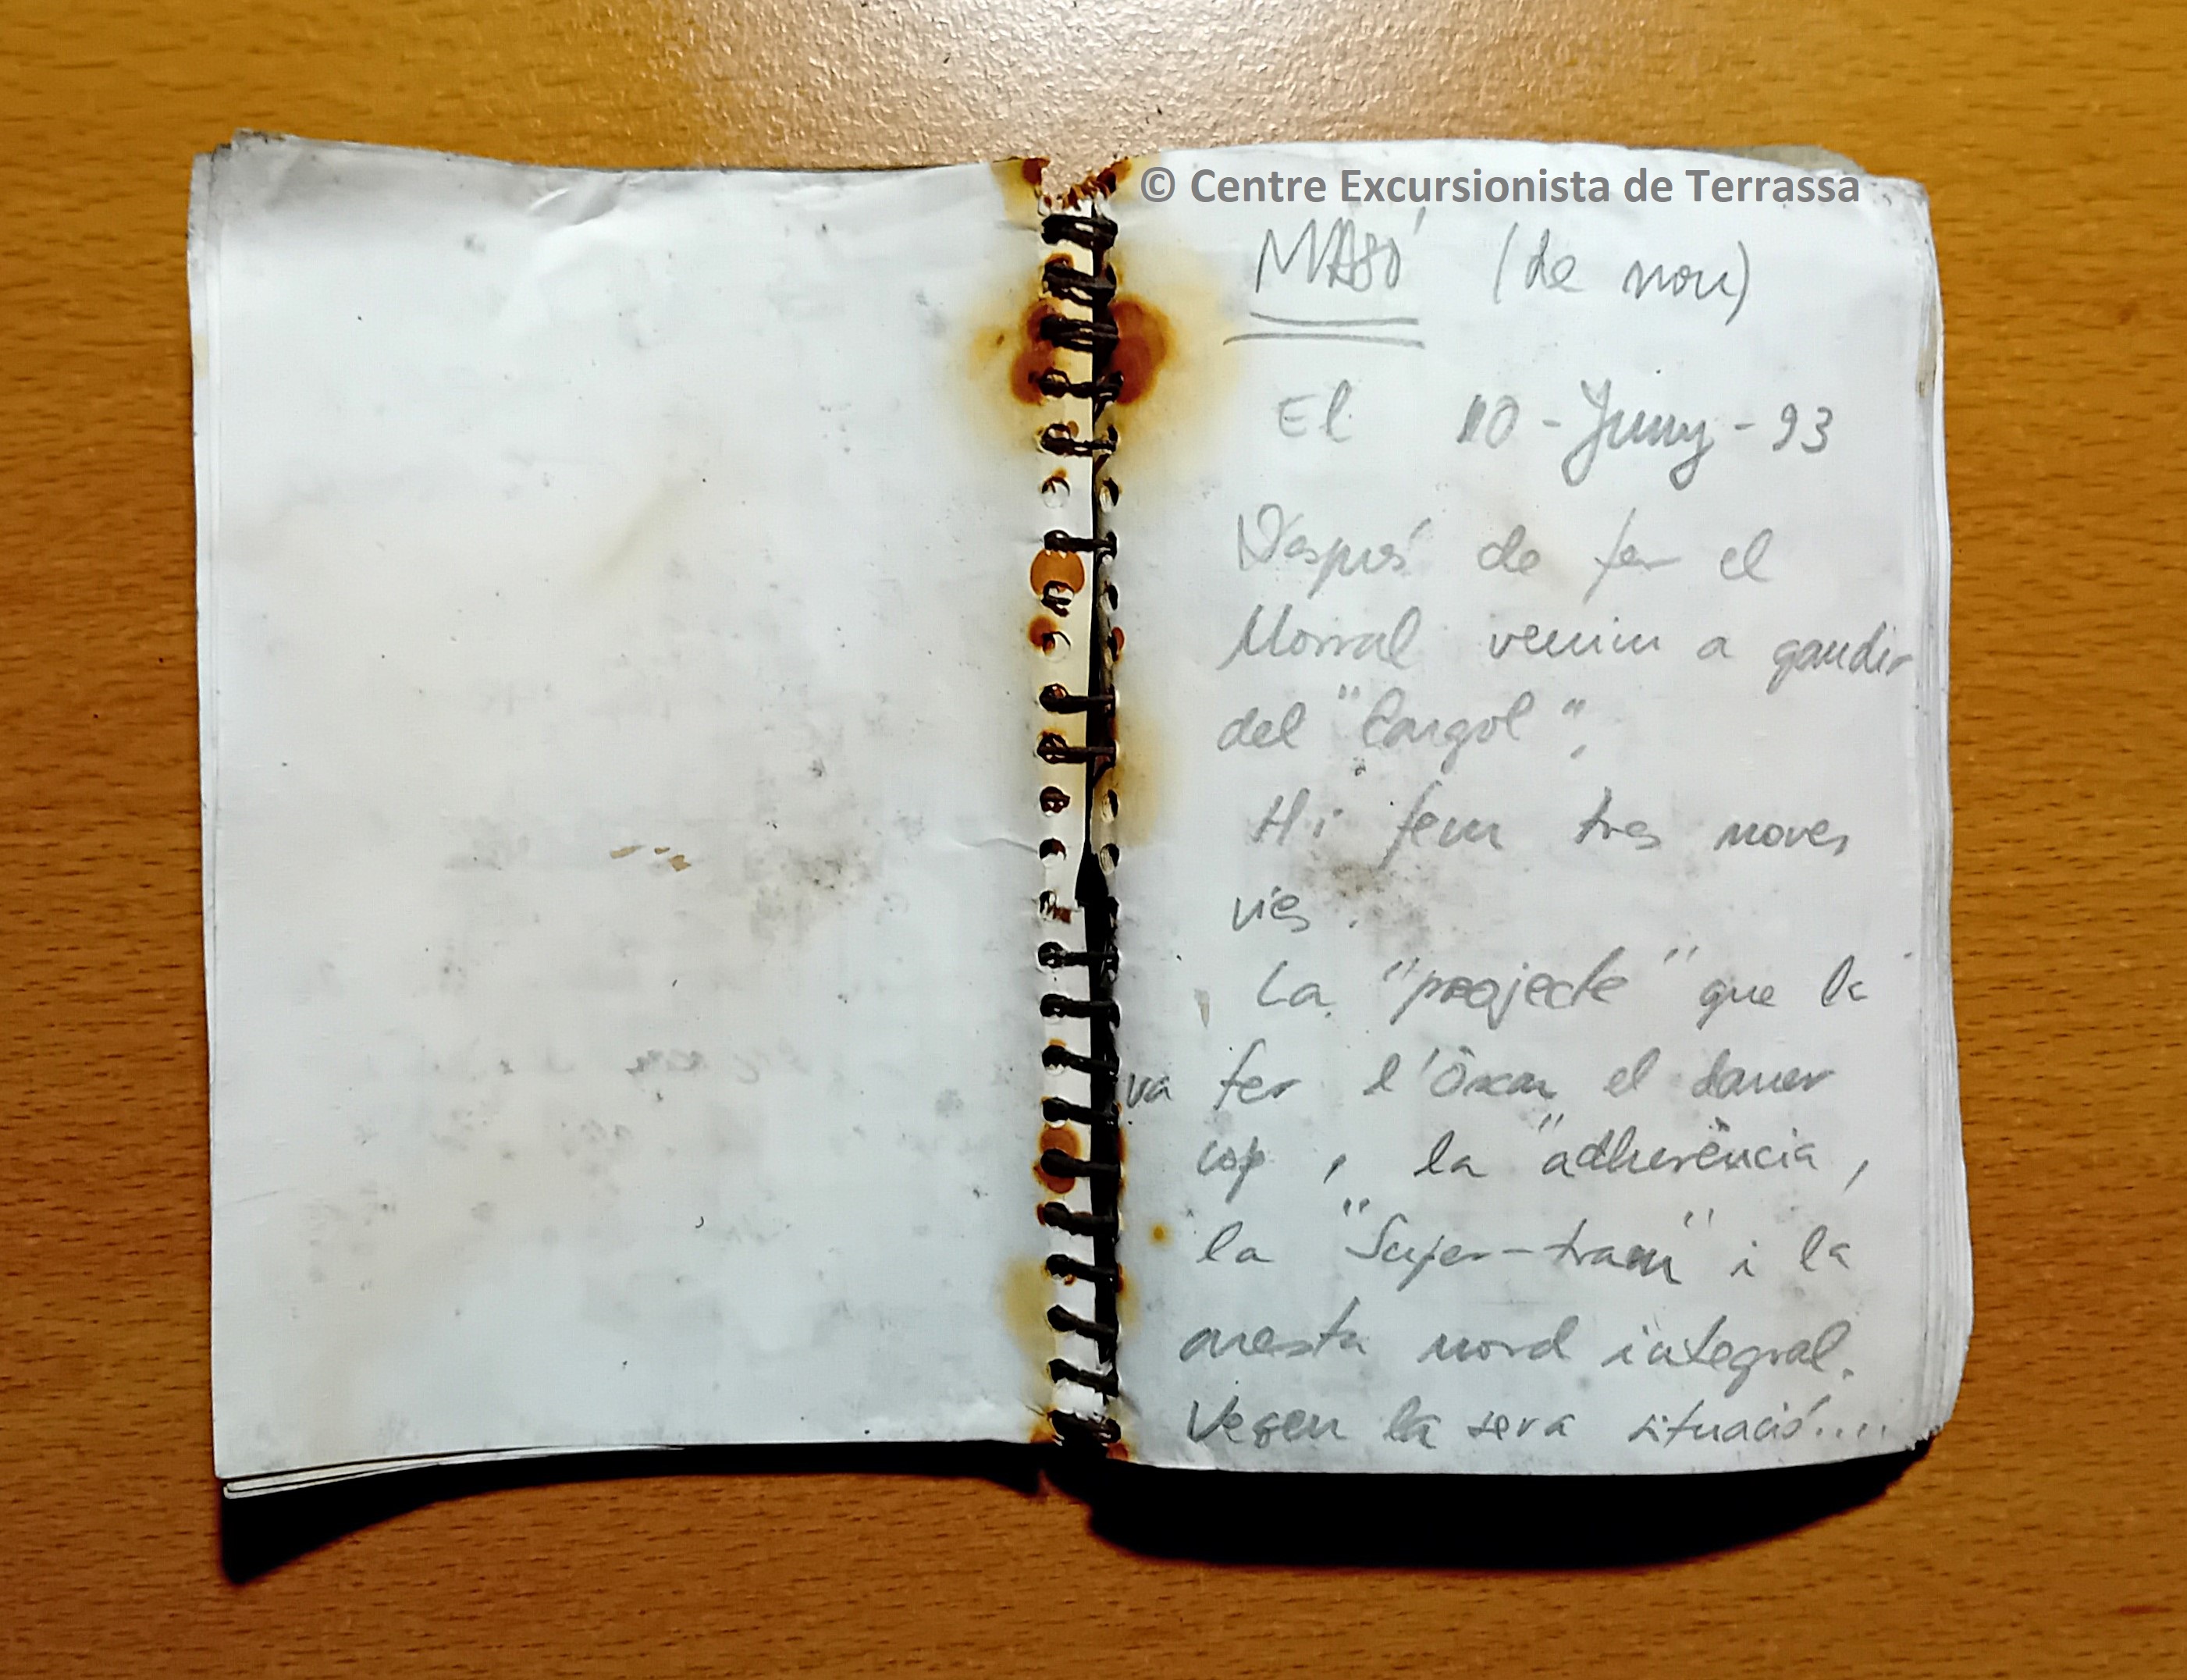 © Centre Excursionista de Terrassa
MASÓ (de nou)
El 10-Juny-93
Després de fer el
Morral venim a gaudir
del "Cargol".
Hi fem tres noves
vies.
La "projecte" que la
va fer l'Òscar el darrer
cop, la "adherència,
la "Super-tram" i la
aresta nord integral.
Vegeu la seva situació....